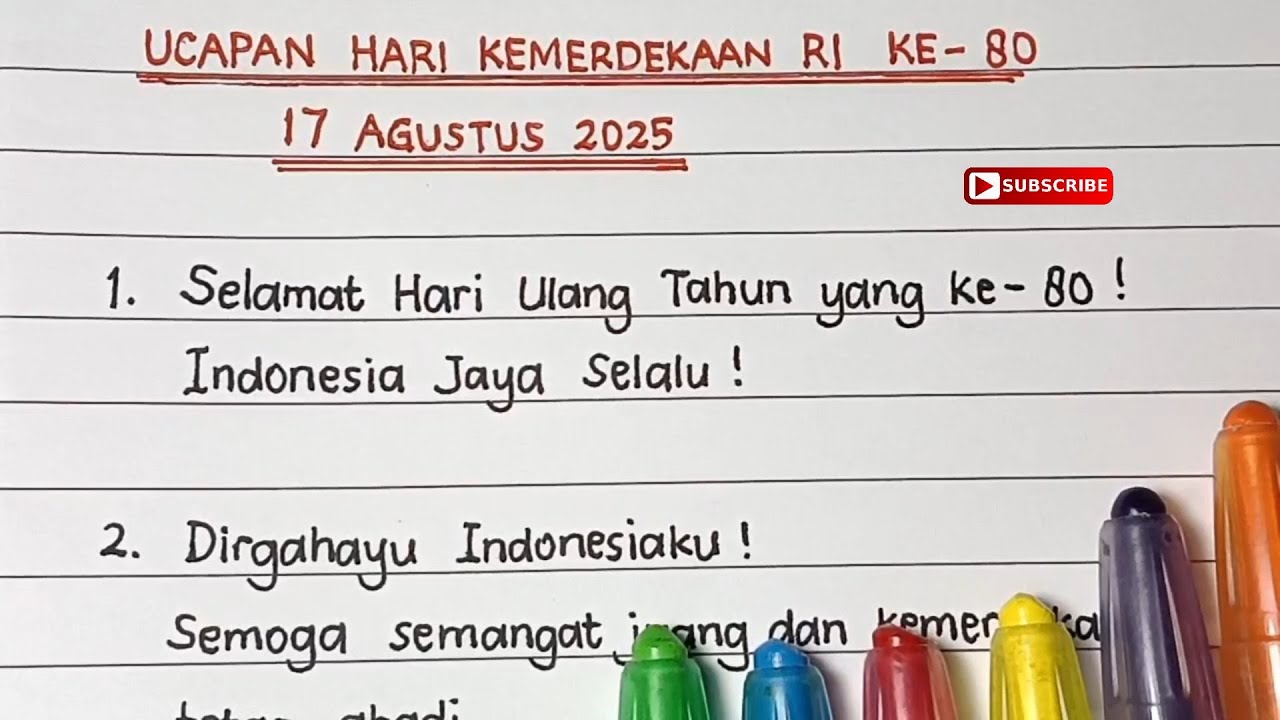 UCAPAN HARI KEMERDEKAAN RI KE-80
17 AGUSTUS 2025
SUBSCRIBE
1. Selamat Hari Ulang Tahun yang ke-80!
Indonesia Jaya Selalu!
2. Dirgahayu Indonesiaku!
Semoga semangat dan
abadi